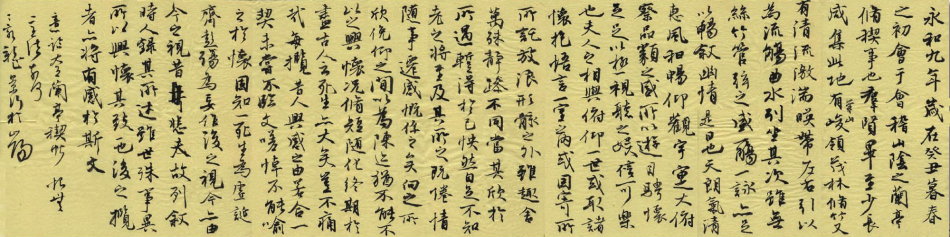 永和九年歲在癸丑暮春
之初會于會稽山陰之蘭亭
脩禊事也群賢畢至少長
咸集此地有崇山峻領茂林脩竹又
有清流激湍暎帶左右引以
為流觴曲水列坐其次雖無
絲竹管弦之盛觴一詠亦足
以暢敘幽情是日也天朗氣清
惠風和暢仰觀宇宙大俯
察品類之盛所以遊目騁懷
足以極視聽之娛信可樂
也夫人之相與俯仰一世或取諸
懷抱悟言一室內或因寄所
所託放浪形骸之外雖趣舍
萬殊靜躁不同當其欣於
所遇暫得於己怏然自足不知
老之將至及其所之既倦情
隨事遷感慨係之矣向之所
欣俛仰之間以為陳迹猶不能不
以之興懷況脩短隨化終期於
盡古人云死生亦大矣豈不痛
哉每攬昔人興感之由若合一
契未嘗不臨文嗟悼不能喻
之於懷固知一死生為虛誕
齊彭殤為妄作後之視今亦由
今之視昔悲夫故列敘
時人錄其所述雖世殊事異
所以興懷其致一也後之攬
者亦將有感於斯文
蘭亭禊帖